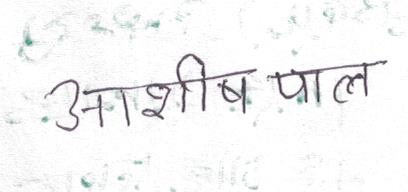 आशीष पाल